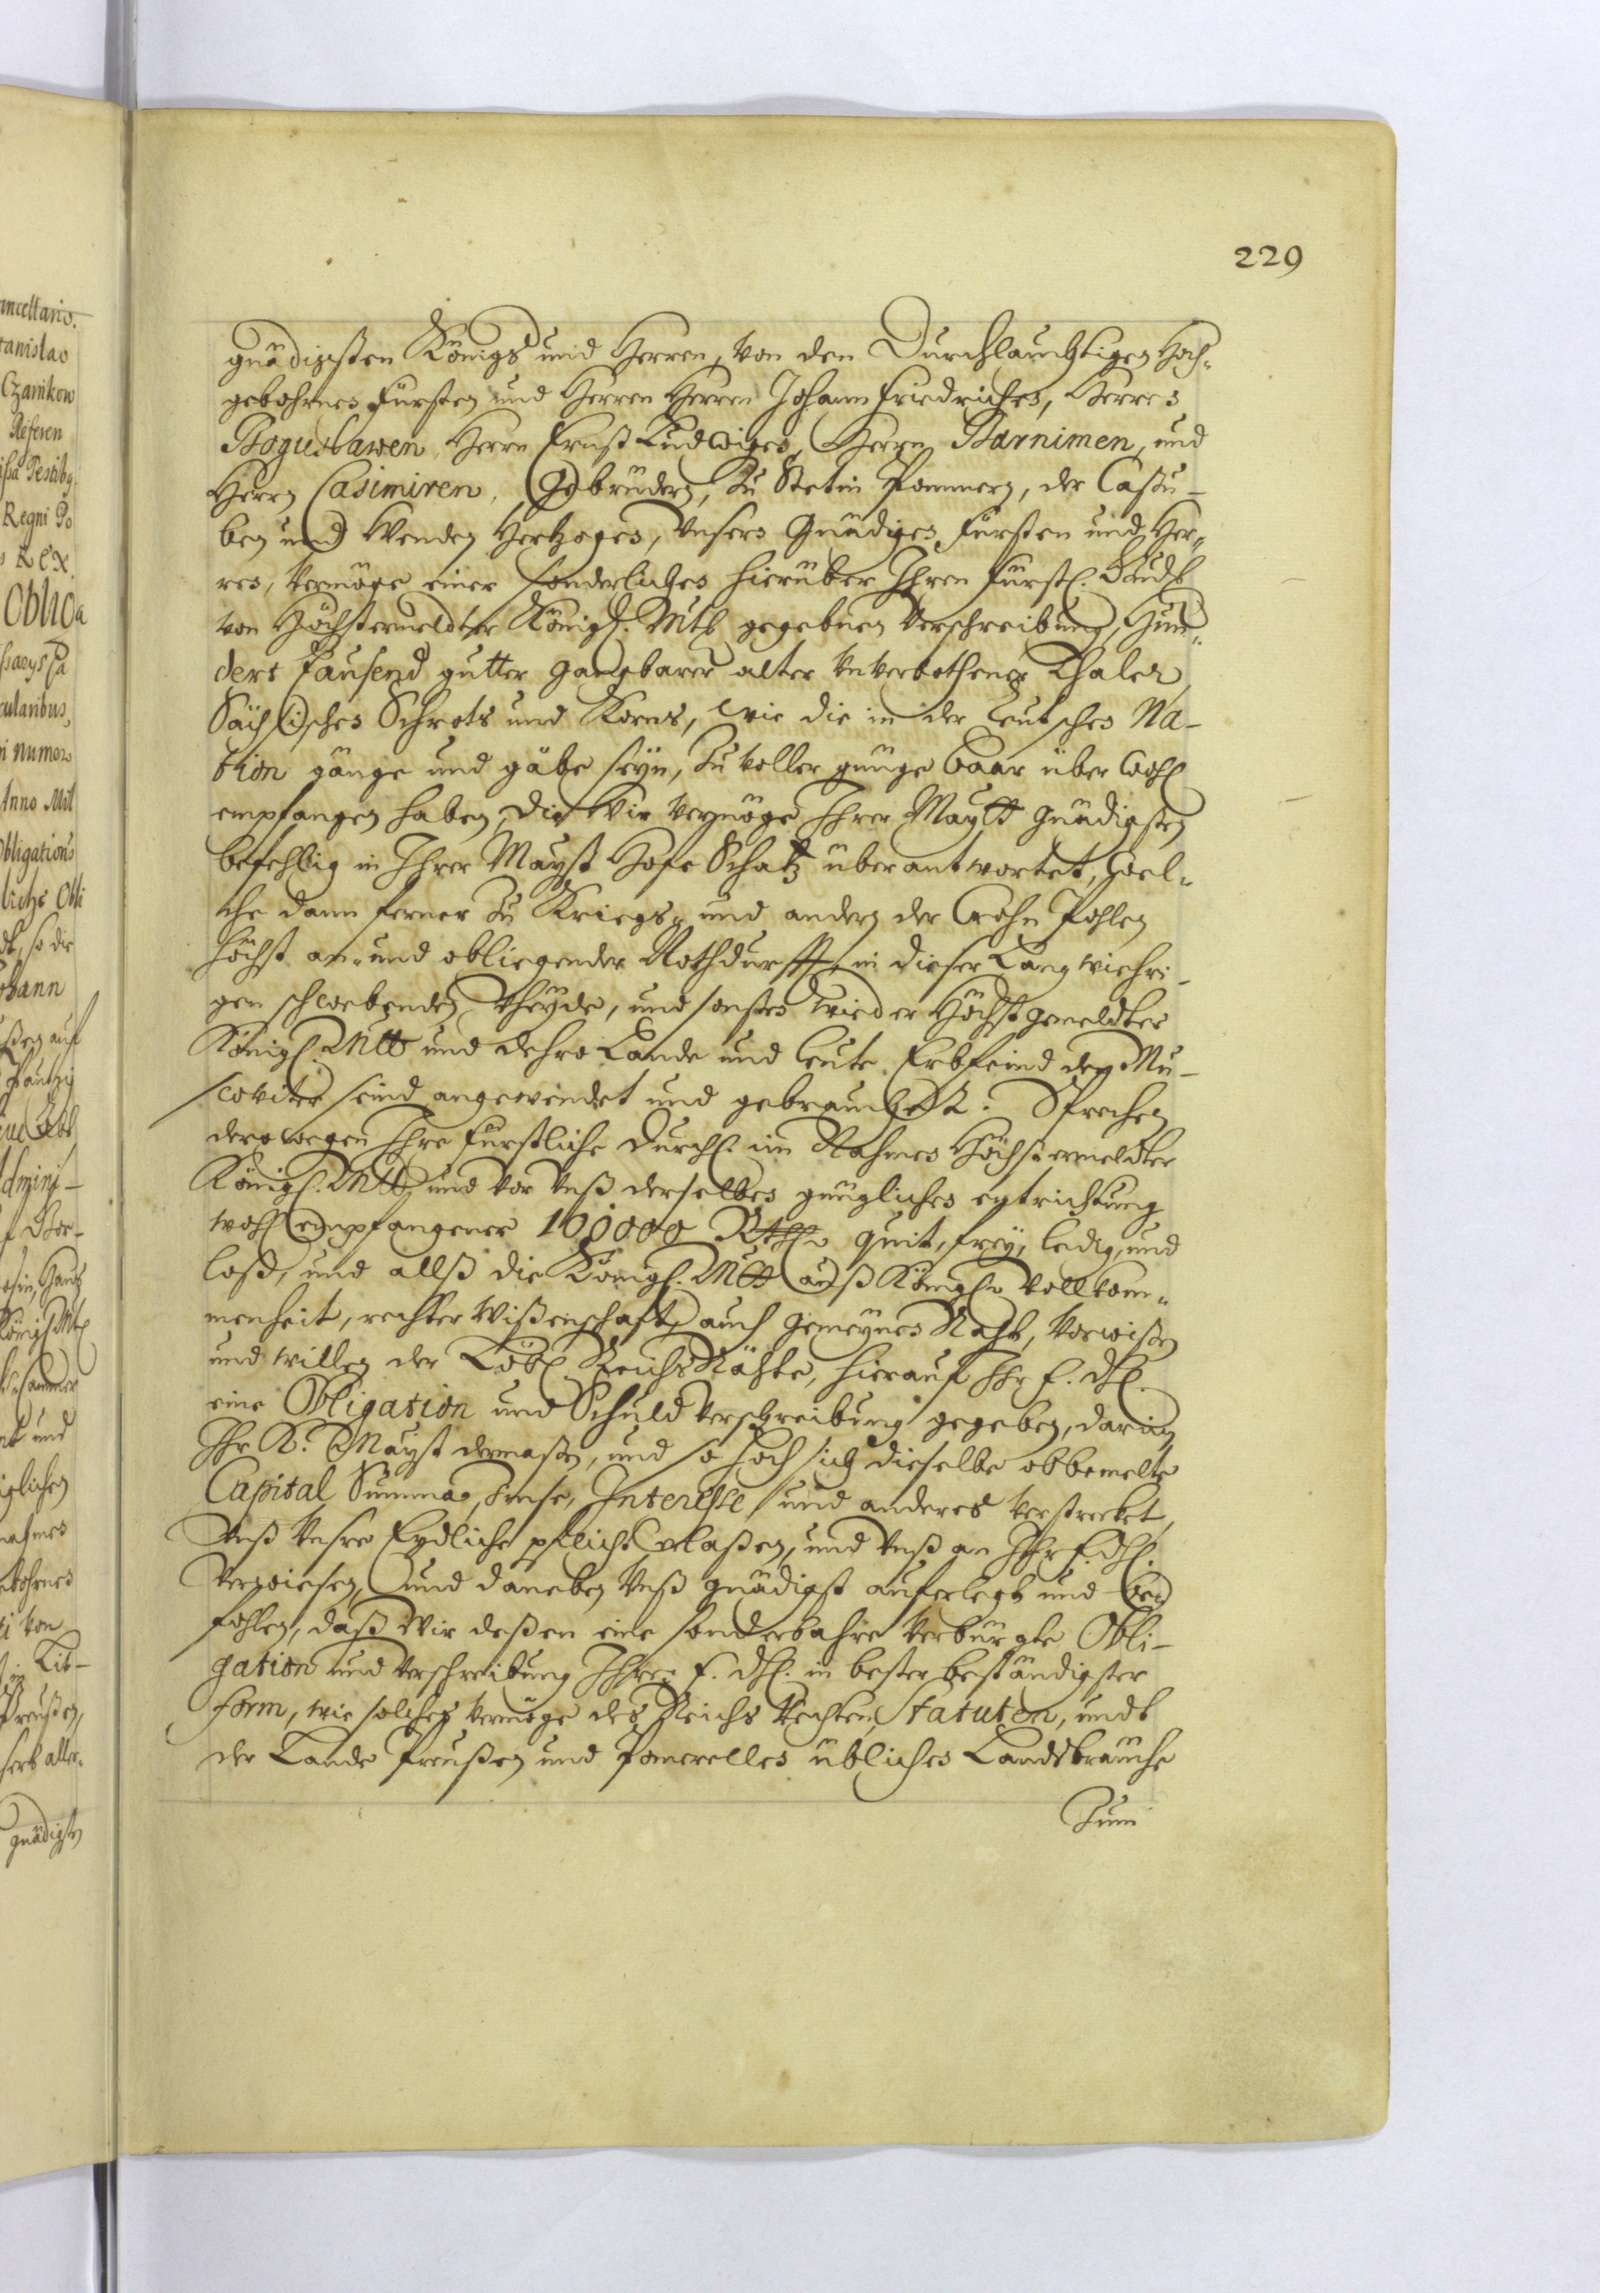 229
gnädigsten Königs und Herren, von den Durchlauchtigen Hoch-
gebohrnen Fürsten und Herren Herren Johann Friedrichen, Herren
Boguslawen, Herrn Ernst Ludwigen, Herrn Barnimen, und
Herrn Casimiren, Gebrüdern, zu Stetin Pommern, der Caßu-
ben und Wenden Hertzogen, Unsern Gnädigen Fürsten und Her-
ren, Vermöge einer sonderlichen hierüber Ihren Fürstl.
von Höchstermeldter Königl. Mtt gegebnen Verschreibung, Hun-
dert Tausend gutter gangbarer alter unverbothener Thaler,
Sächsischen Schrots und Korns, wie die in der Teutschen Na-
tion gänge und gäbe seyn, zu voller gnüge baar über wohl
empfangen haben, die Wir Vermöge Ihrer Maytt gnädigsten
befehlig in Ihrer Mayst Hofe Schatz überantwortet, wel-
che dann ferner zu Kriegs- und andern der Crohn Pohlen
höchst an- und obliegender Nothdurfft, in dieser Langwiehri-
gen schwebenden Vheyde, und sonsten wieder Höchstgemeldter
Königl. Mtt und dehro Lande und Leute Erbfeind den Mu-
scoviter seind angewendet und gebraucht. Sprechen
derowegen Ihre Fürstliche Durchl. im Nahmen Höchstermeldter
Königl. Mtt und vor Unß derselben gnüglichen entrichtung
wohl empfangener 100000 Rthlr quit, frey, ledig, und
loß, und allß die Königl. Mtt auß Königl. Vollkom-
menheit, rechter Wißenschaft, auch gemeynen Raht, Vorwißen
und willen der Löbl. ReichsRähte, hierauf Ihr f. dhl.
eine Obligation und Schuld Verschreibung gegeben, darin
Ihr K. Mayst dermaßen, und so hoch sich dieselbe obbemelte
Capital Summa, Zinse, Interesse und anderes verstrecket,
Unß Unsre Eydliche pflicht erlaßen, und Unß an Ihr f. dhl.
verwiesen, und daneben Unß gnädigst auferlegt und be-
fohlen, daß Wir deßen eine sonderbahre Verbürgte Obli-
gation und Verschreibung Ihrer f. dhl. in bester beständigster
Form, wie solches vermöge des Reichs Rechten, Statuten, undt
der Lande Preußen und Pomerellen üblichen Landsbräuche
Zum